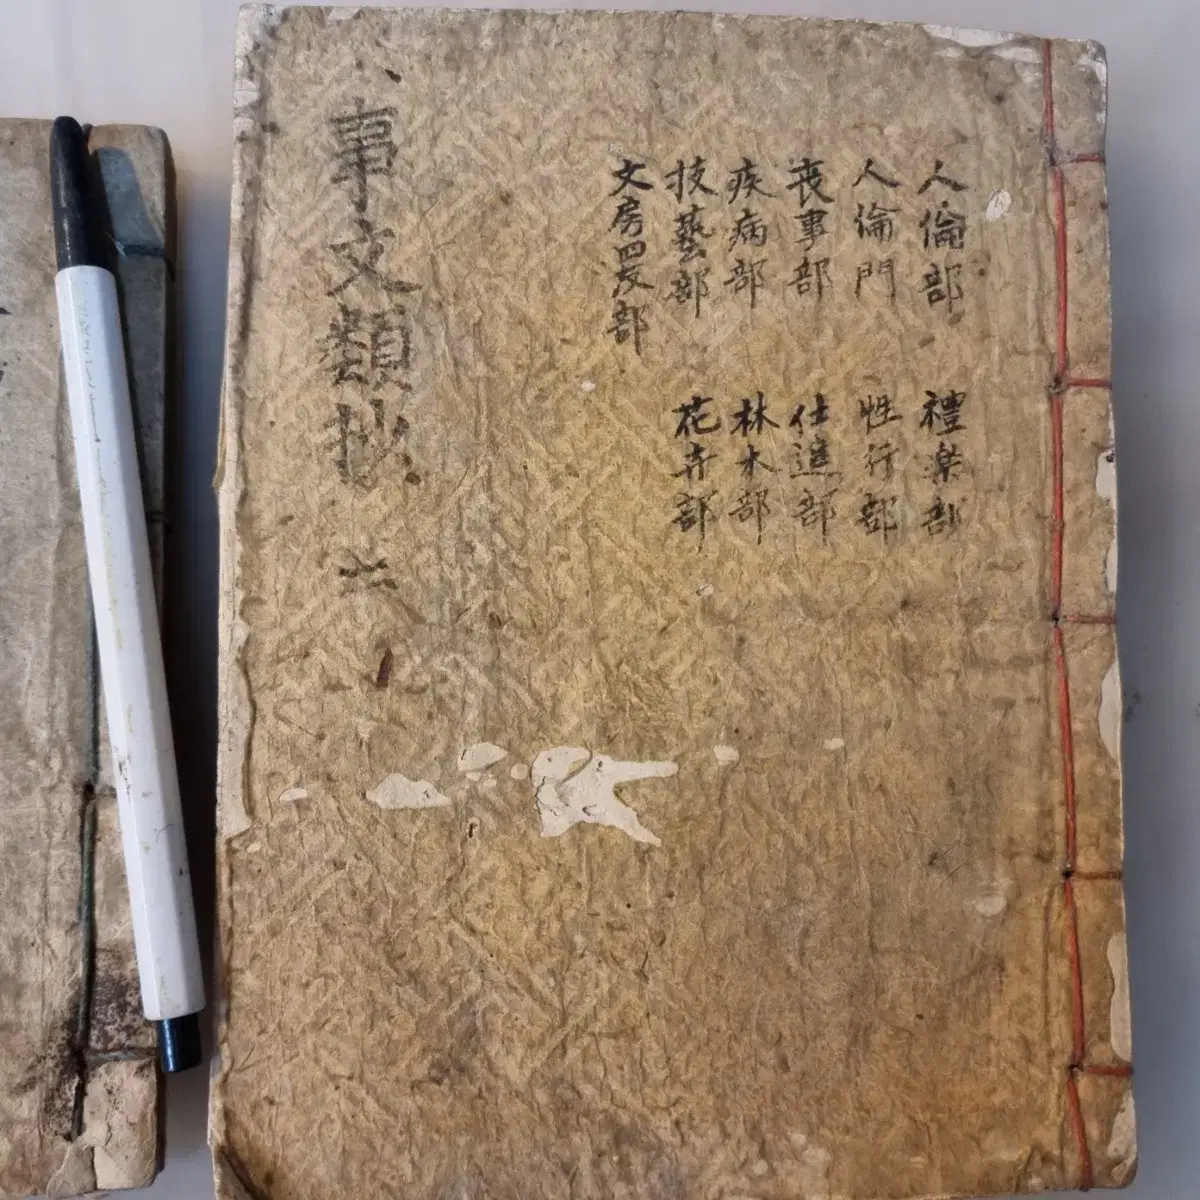 人倫部 禮楽部
人倫門 性行部
喪事部 仕進部
疾病部 林木部
技藝部 花卉部
文房四友部
事文類抄